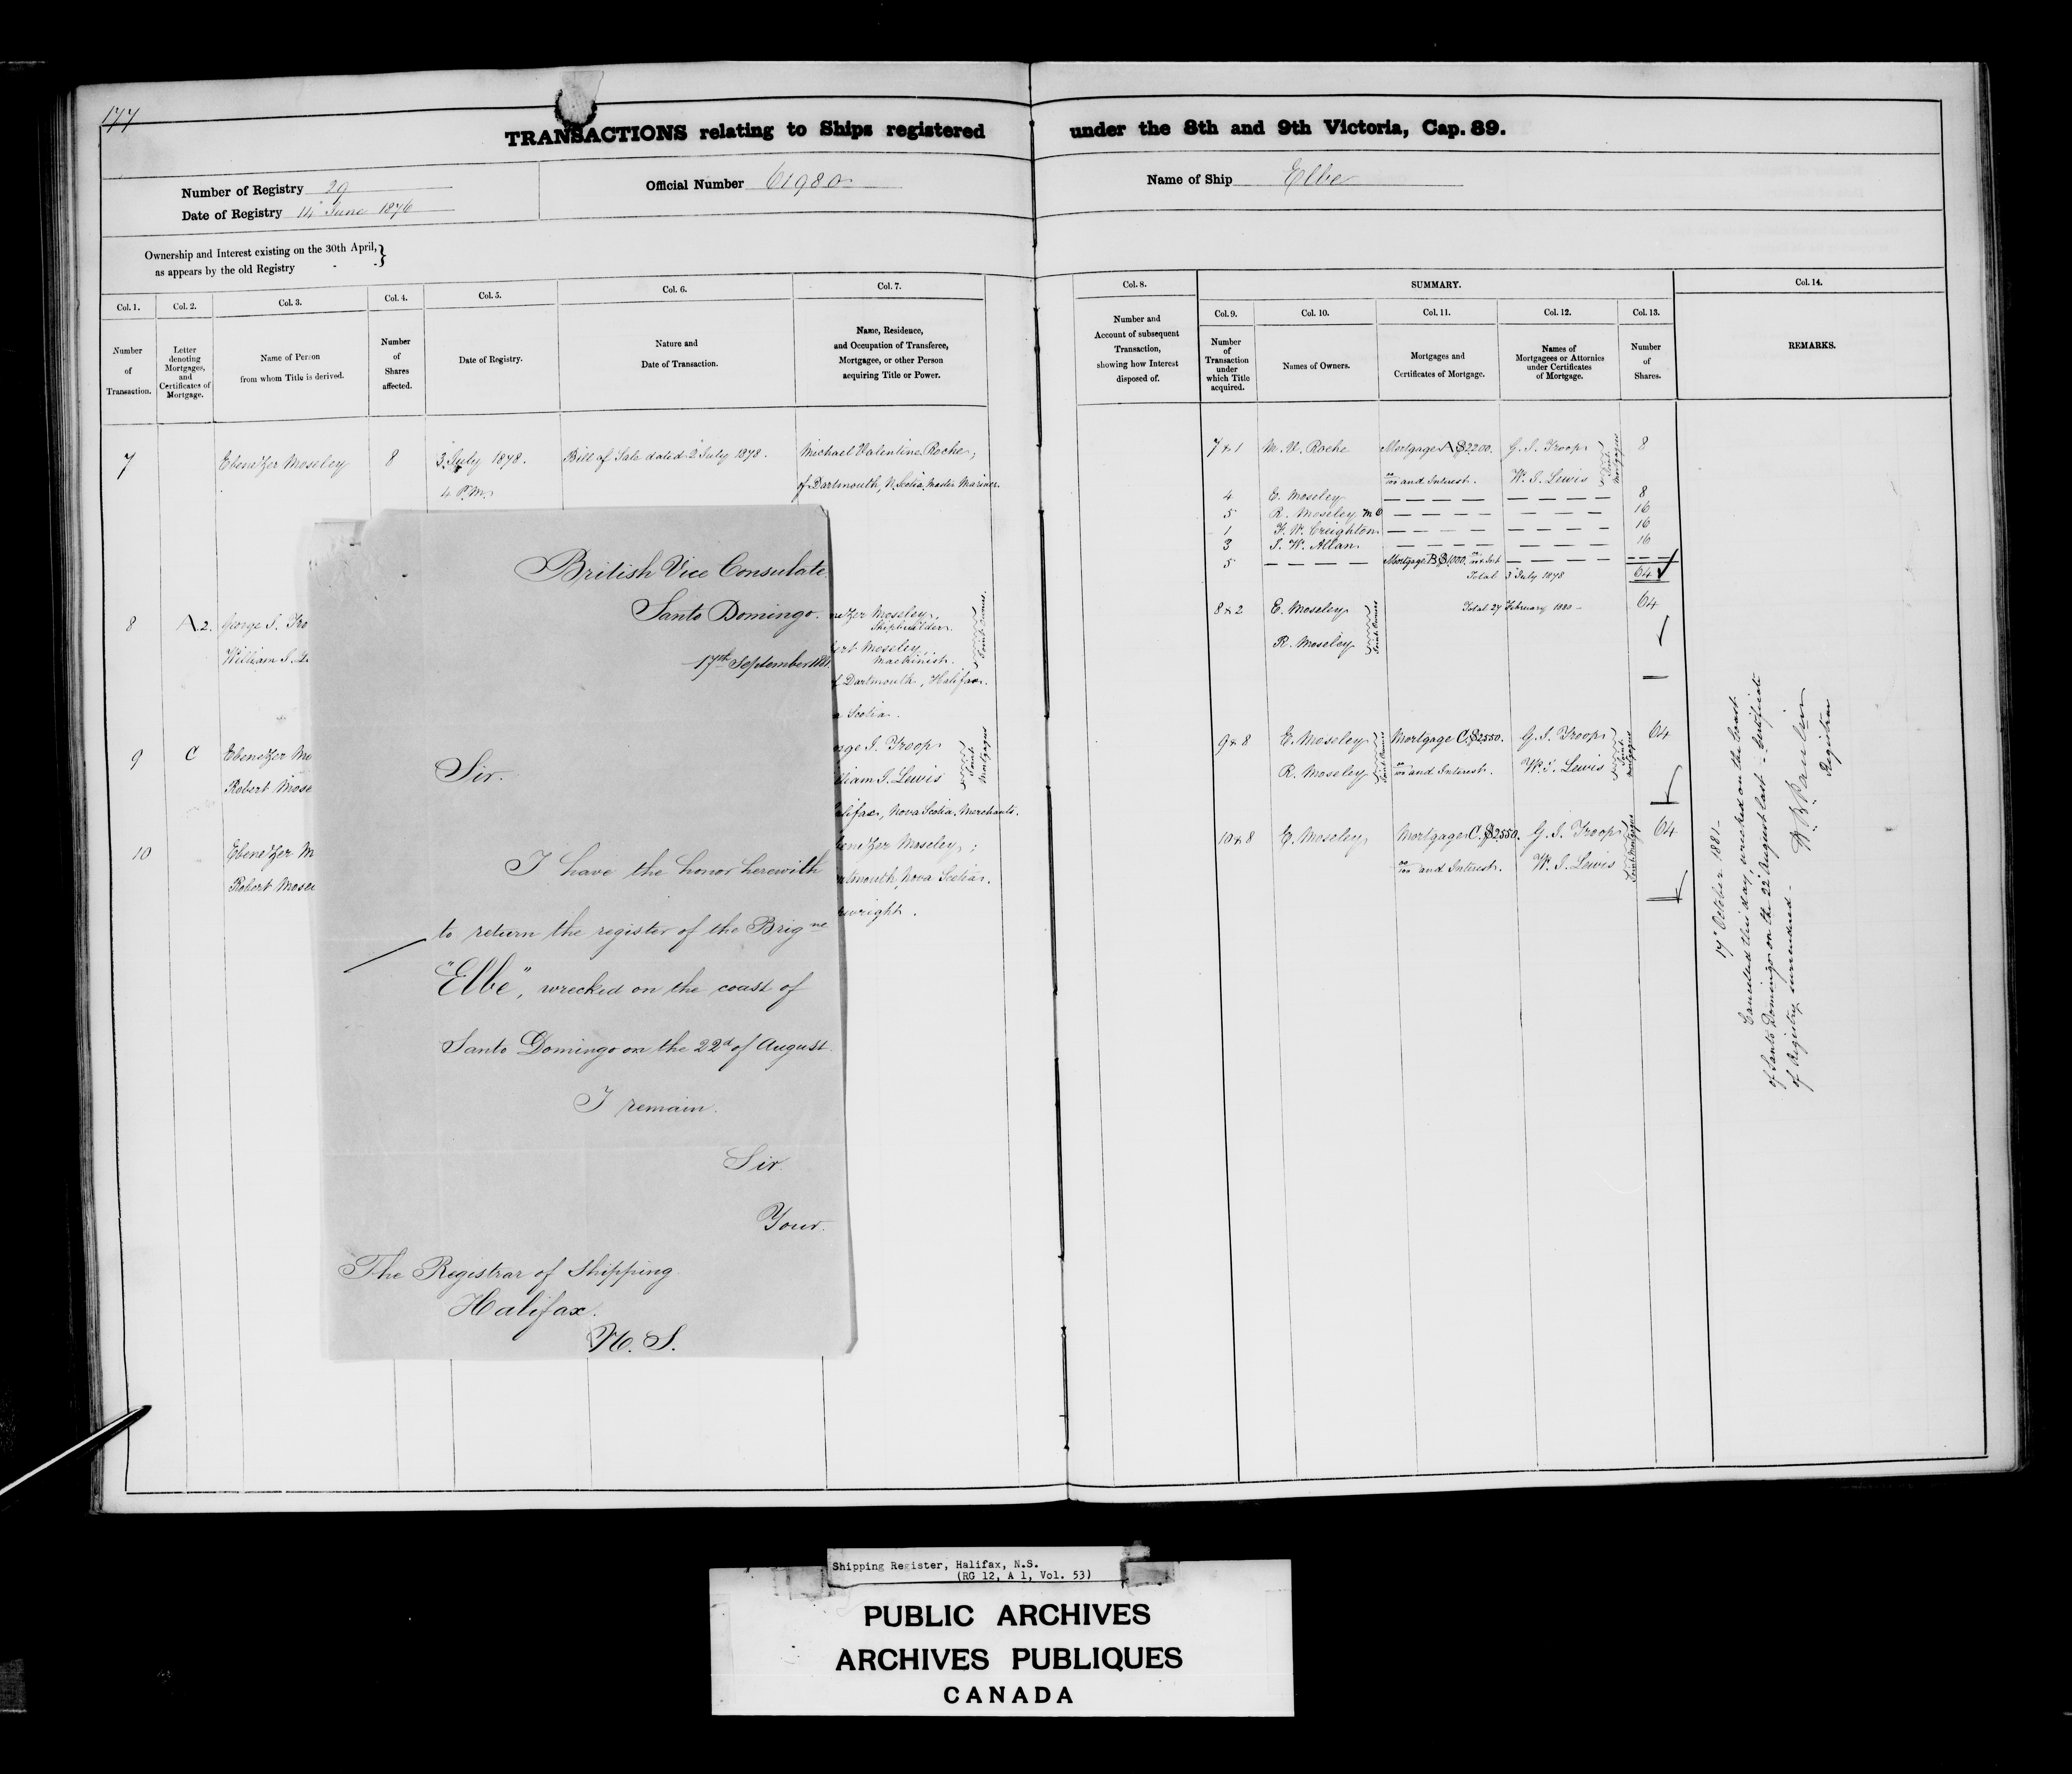 177
TRANSACTIONS relating to Ships registered under the 8th and 9th Victoria, Cap. 89.
Number of Registry 29
Date of Registry 14 June 1876
Official Number 61980
Name of Ship Elbe
Ownership and Interest existing on the 30th April, }
as appears by the old Registry - -
Col. 1.
Number
of
Transaction.
Col. 2.
Letter
denoting
Mortgages,
and
Certificates of
Mortgage.
Col. 3.
Name of Person
from whom Title is derived.
Col. 4.
Number
of
Shares
affected.
Col. 5.
Date of Registry.
Col. 6.
Nature and
Date of Transaction.
Col. 7.
Name, Residence,
and Occupation of Transferee,
Mortgagee, or other Person
acquiring Title or Power.
7 Ebenezer Moseley 8 3 July 1878. Bill of Sale dated 2 July 1878. Michael Valentine Roche,
4 P.M. of Dartmouth, N. Scotia, Master Mariner.
8 A.2. George J. Tro
William J. L
nezer Moseley,
Shipbuilder.
ert Moseley
Machinist.
Joint Owners.
f Dartmouth, Halifax.
a Scotia.
9 C Ebenezer Mo
Robert Mose
rge J. Troop
liam J. Lewis
Joint Mortgagees
alifax, Nova Scotia, Merchants.
10 Ebenezer M
Robert Mosel
enezer Moseley;
rtmouth, Nova Scotia.
pwright.
British Vice Consulate
Santo Domingo.
17th September 1881.
Sir.
I have the honor herewith
to return the register of the Brig ne
"Elbe", wrecked on the coast of
Santo Domingo on the 22d of August.
I remain.
Sir
Your.
The Registrar of Shipping
Halifax.
N. S.
Col. 8.
Number and
Account of subsequent
Transaction,
showing how Interest
disposed of.
SUMMARY.
Col. 9.
Number
of
Transaction
under
which Title
acquired.
Col. 10.
Names of Owners.
Col. 11.
Mortgages and
Certificates of Mortgage.
Col. 12.
Names of
Mortgagees or Attornies
under Certificates
of Mortgage.
Col. 13.
Number
of
Shares.
Col. 14.
REMARKS.
7 & 1 M. V. Roche Mortgage A $2200. G. J. Troop 8
oo/100 and Interest. W. J. Lewis
Joint Mortgagees
4 E. Moseley 8
5 R. Moseley 16
1 F. W. Creighton 16
3 J. W. Allan 16
5 Mortgage B $1000
Total 3 July 1878 64
8 & 2 E. Moseley Total 27 February 1880 - 64
R. Moseley
Joint Owners
9 & 8 E. Moseley Mortgage C. $2550. G. J. Troop 64
R. Moseley oo/100 and Interest. W. J. Lewis
Joint Owners
Joint Mortgagees
10 & 8 E. Moseley Mortgage C. $2550. G. J. Troop 64
oo/100 and Interest. W. J. Lewis
Joint Mortgagees
17 October 1881-
Cancelled this day, wrecked on the Coast
of Santo Domingo on the 22 August last - Certificate
of Registry surrendered -
Registrar
Shipping Register, Halifax, N.S.
(RG 12, A 1, Vol. 53)
PUBLIC ARCHIVES
ARCHIVES PUBLIQUES
CANADA